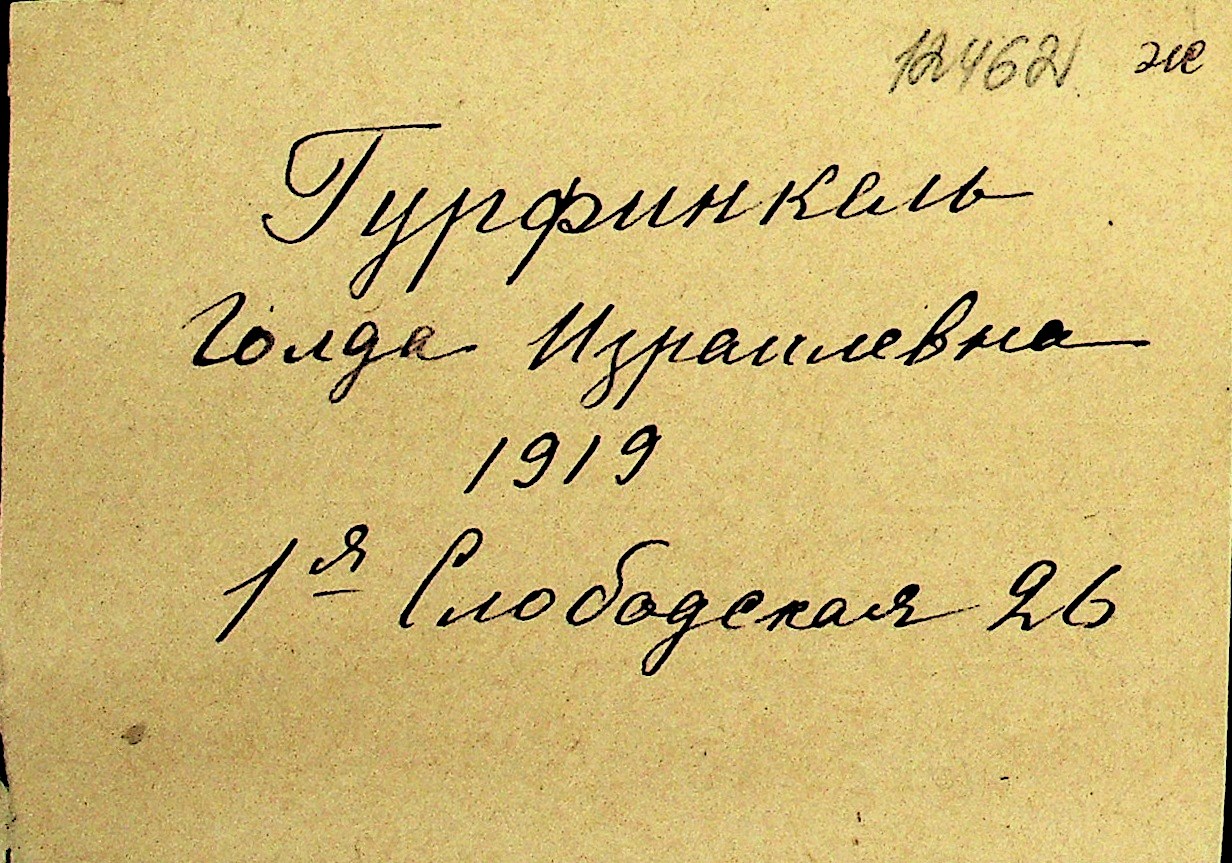 12462 же
Гурфинкель
Голда Израилевна
1919
1я Слободская 26